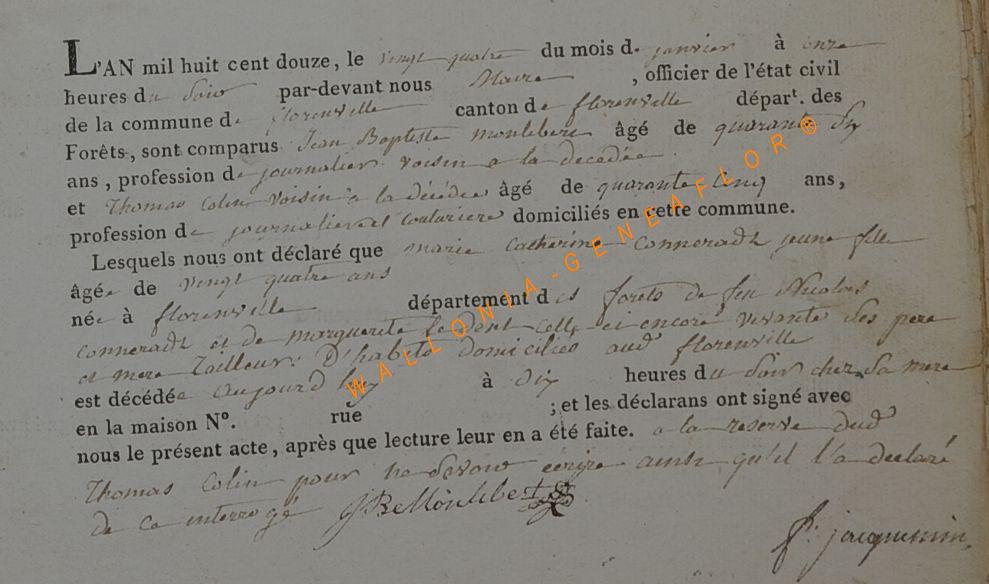 L'AN mil huit cent douze, le vingt quatre du mois de janvier à onze
heures du Soir par-devant nous Maire , officier de l'état civil
de la commune de florenville canton de florenville départ. des
Forêts, sont comparus Jean Baptiste monlebert âgé de quarante Six
ans, profession de journalier voisin a la decedée
et Thomas Colin voisin a la décédée âgé de quarante Cinq ans,
profession de journalier et couturiere domiciliés en cette commune.
Lesquels nous ont déclaré que marie Catherine Conneradt jeune fille
âgée de vingt quatre ans
née à florenville département des forets de feu Nicolas
Conneradt et de marguerite encore vivante Ses pere
et mere Tailleur D'habits domiciliés aud florenville
est décédée aujourd'huy à dix heures du Soir chez Sa mere
en la maison N°. rue ; et les déclarans ont signé avec
nous le présent acte, après que lecture leur en a été faite. a la reserve dud
Thomas Colin pour ne Savoir écrire ainsi qu'il l'a declaré
de ce interrogé JBMonlebert
jacquemin
WALLONIA-GENEAFLOR ®